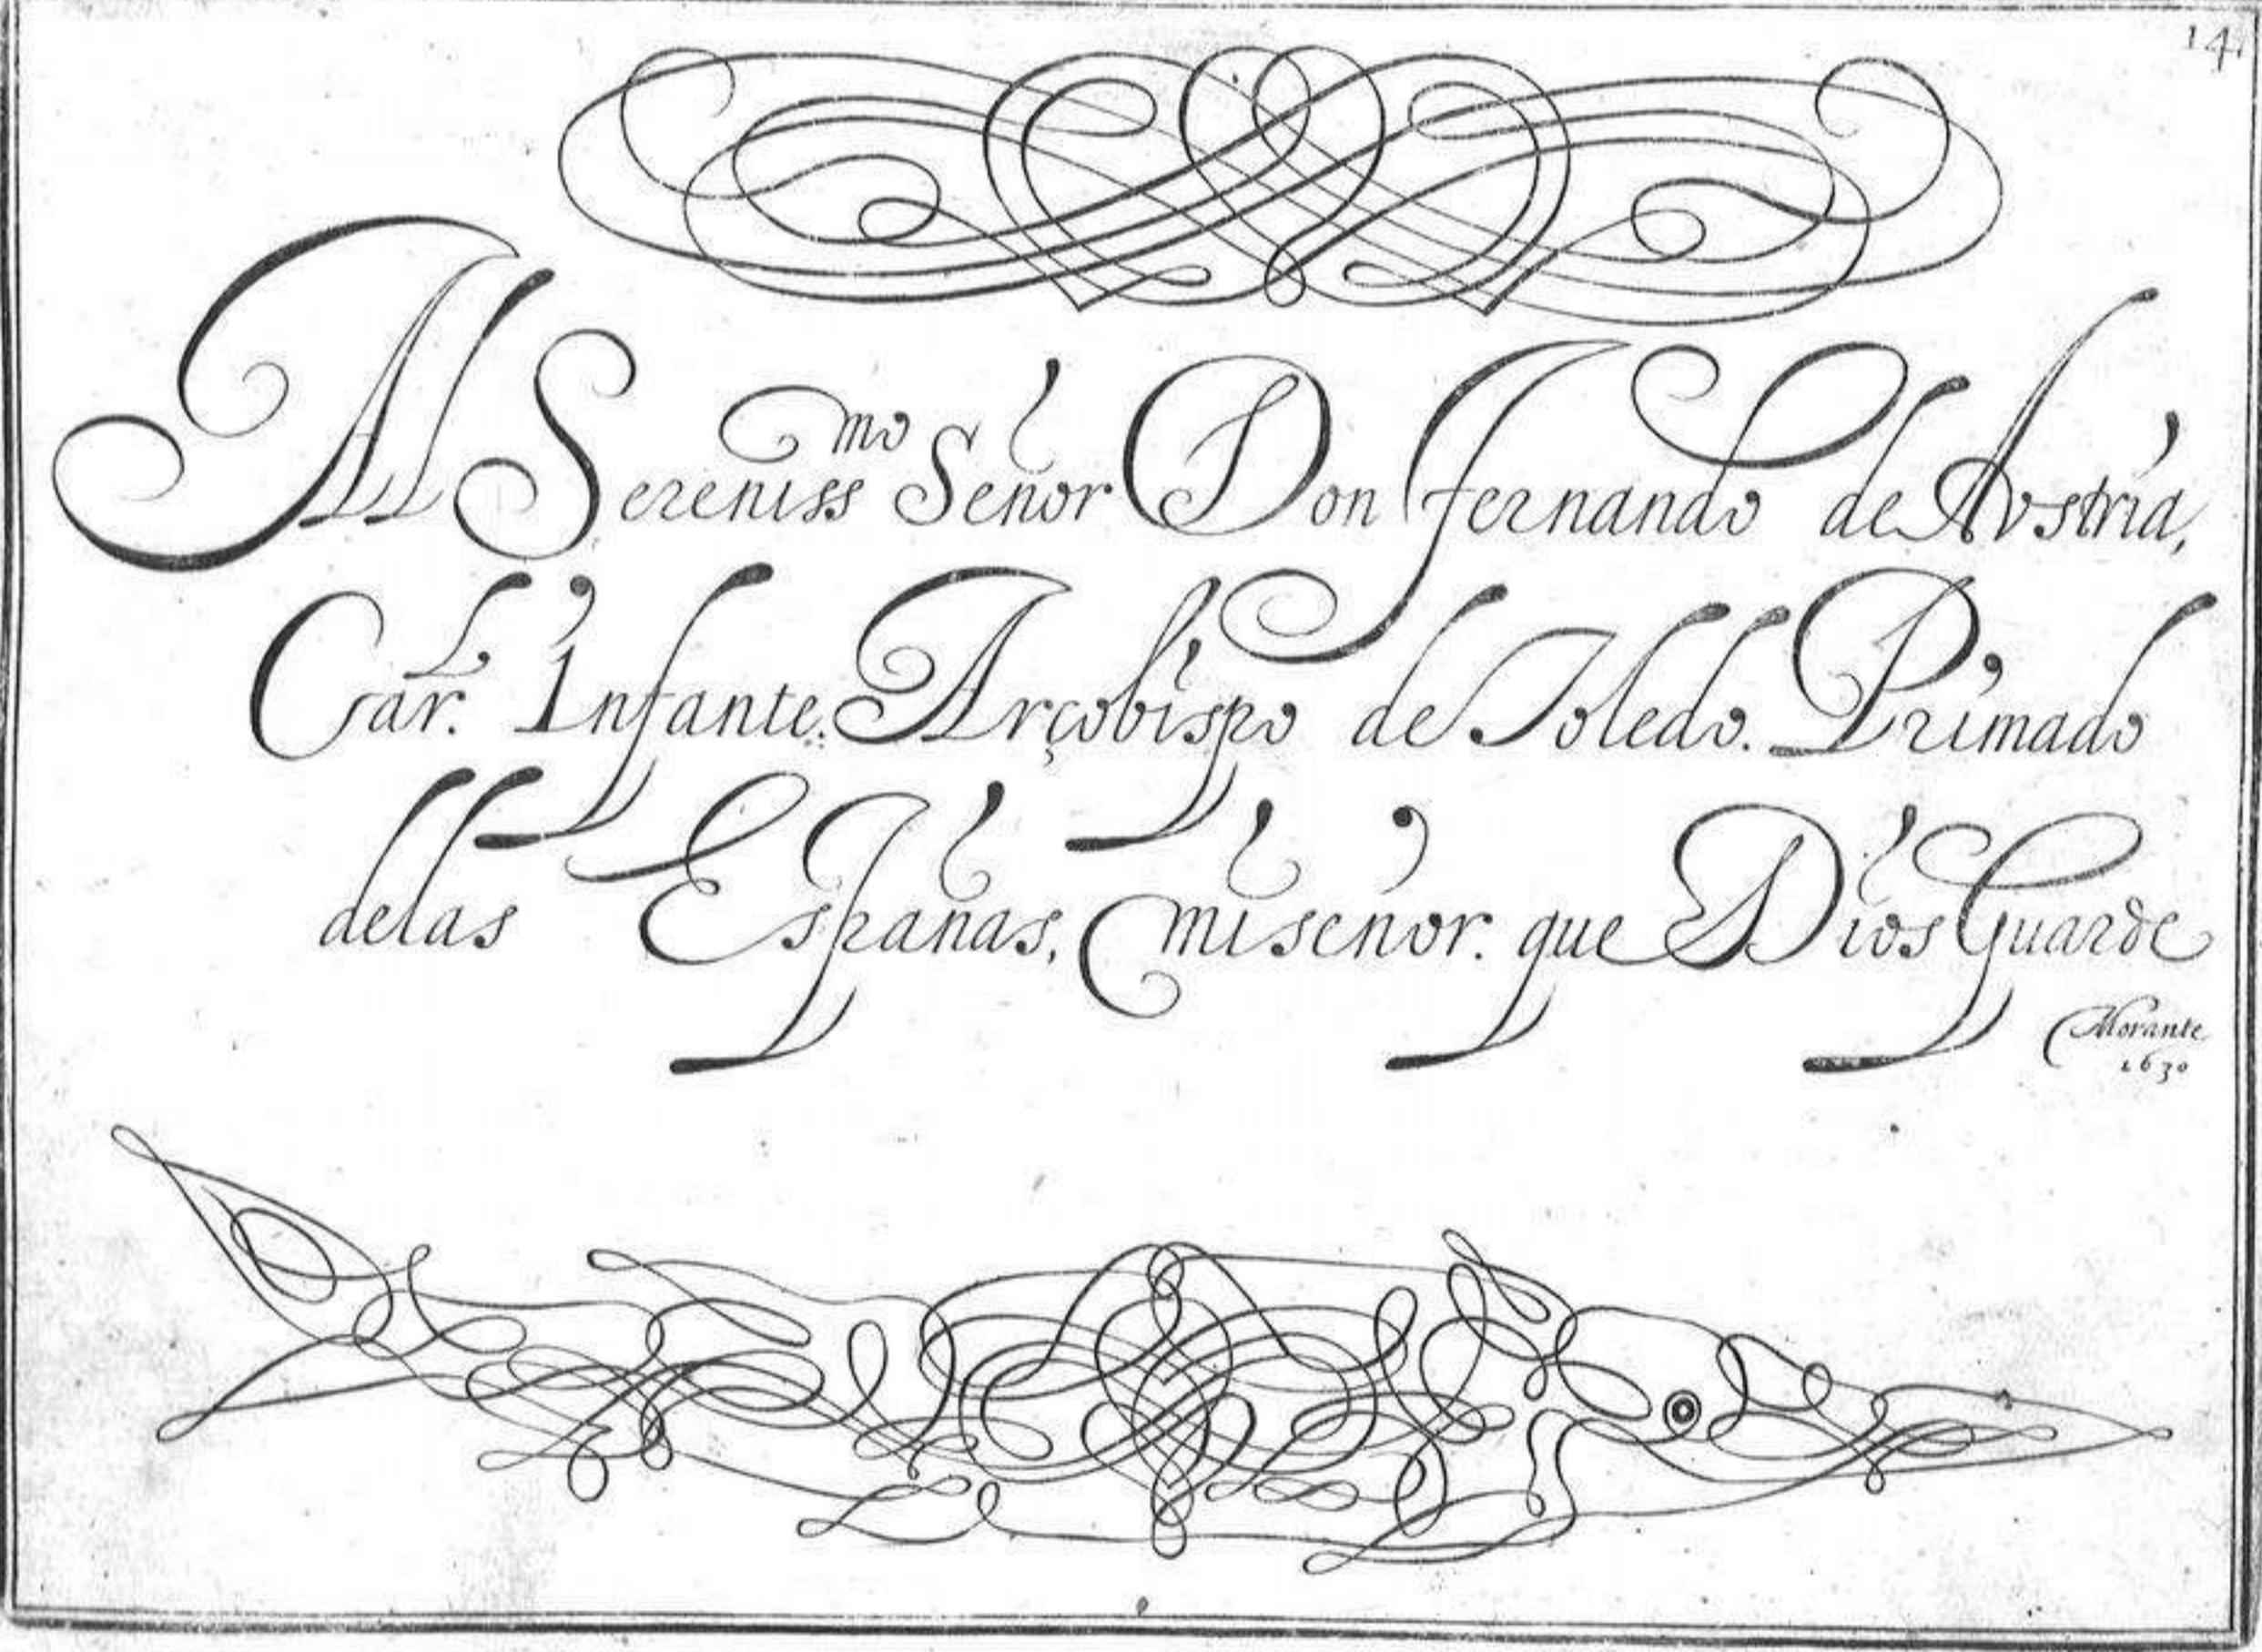 14
Al Sereniss^mo Señor Don Fernando de Avstria,
Car.^l Infante. Arçobispo de Toledo. Primado
delas Españas, mi señor. que Dios Guarde
Morante
1630